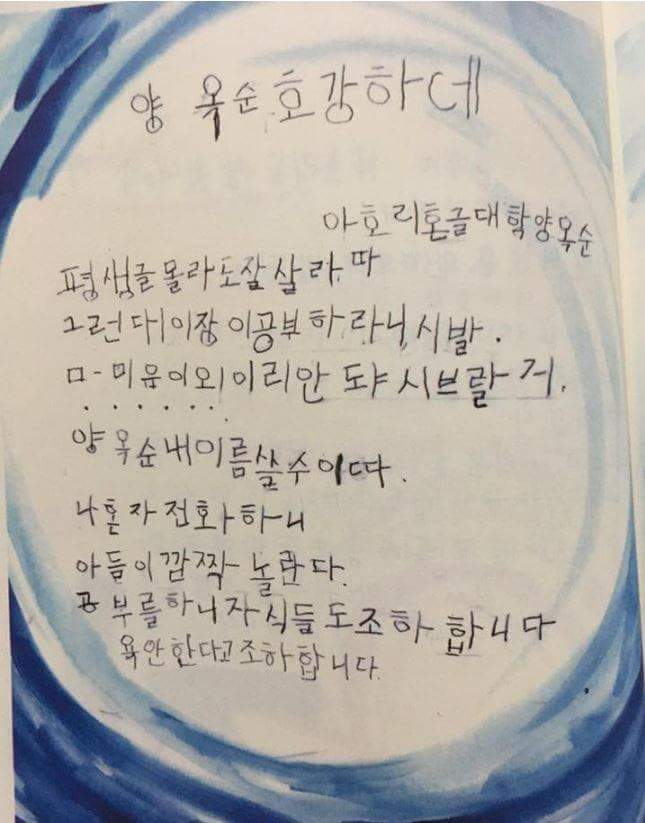 양 옥순 호강하네
아호리혼글대학양옥순
평생글몰라도잘살라따
그런대이장이공부하라니시발.
ㅁ-미유이외이리안 도야 시브랄거.
······
양옥순내이름쓸수이따.
나혼자전화하니
아듬이깜짝놀란다.
공부를하니자식들도조하합니다
욕안한다고조하합니다.